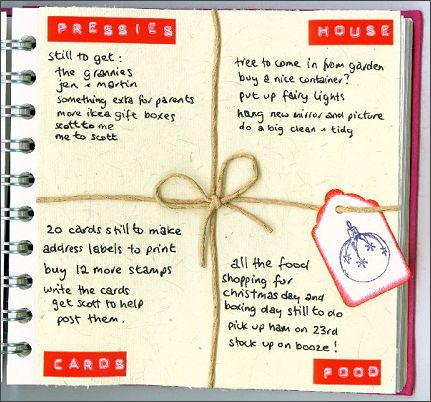 PRESSIES
still to get:
the grannies
jen + martin
something exta for parents
more ikea gift boxes
scott to me
me to scott
HOUSE
tree to come in from garden
buy a nice container?
put up fairy lights
hang new mirror and picture
do a big clean + tidy
20 cards still to make
address labels to print
buy 12 more stamps
write the cards
get scott to help
post them.
CARDS
all the food
shopping for
christmas day and
boxing day still to do
pick up ham on 23rd
stock up on booze!
FOOD